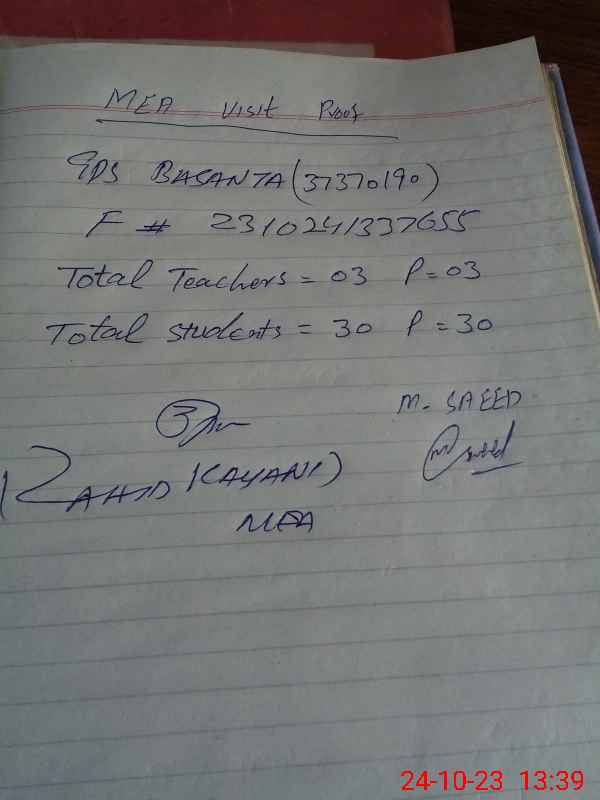 MEA Visit Proof
GPS BASANTA (37370190)
F # 2310241337655
Total Teachers = 03 P = 03
Total students = 30 P = 30
M. SAEED
ZAHID KAYANI
MEA
24-10-23 13:39